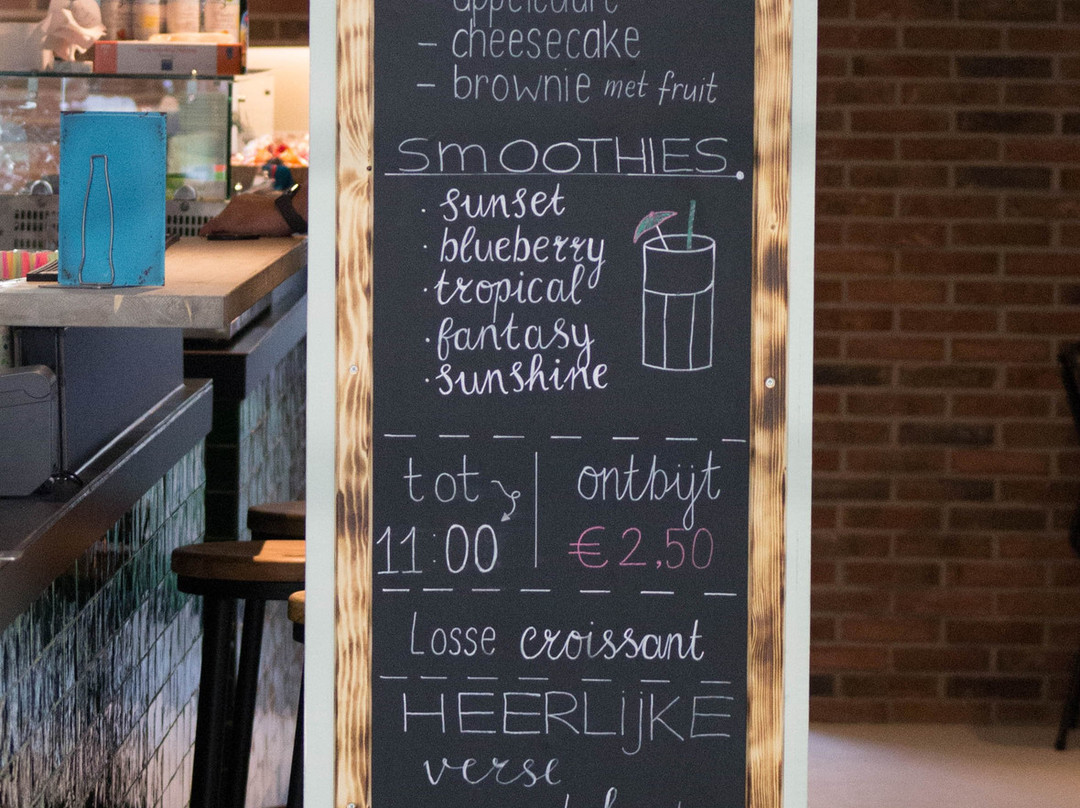 appeltaart
- cheesecake
- brownie met fruit
SMOOTHIES.
· sunset
· blueberry
· tropical
· fantasy
· sunshine
tot
11:00
ontbijt
€2,50
Losse croissant
HEERLIJKE
verse